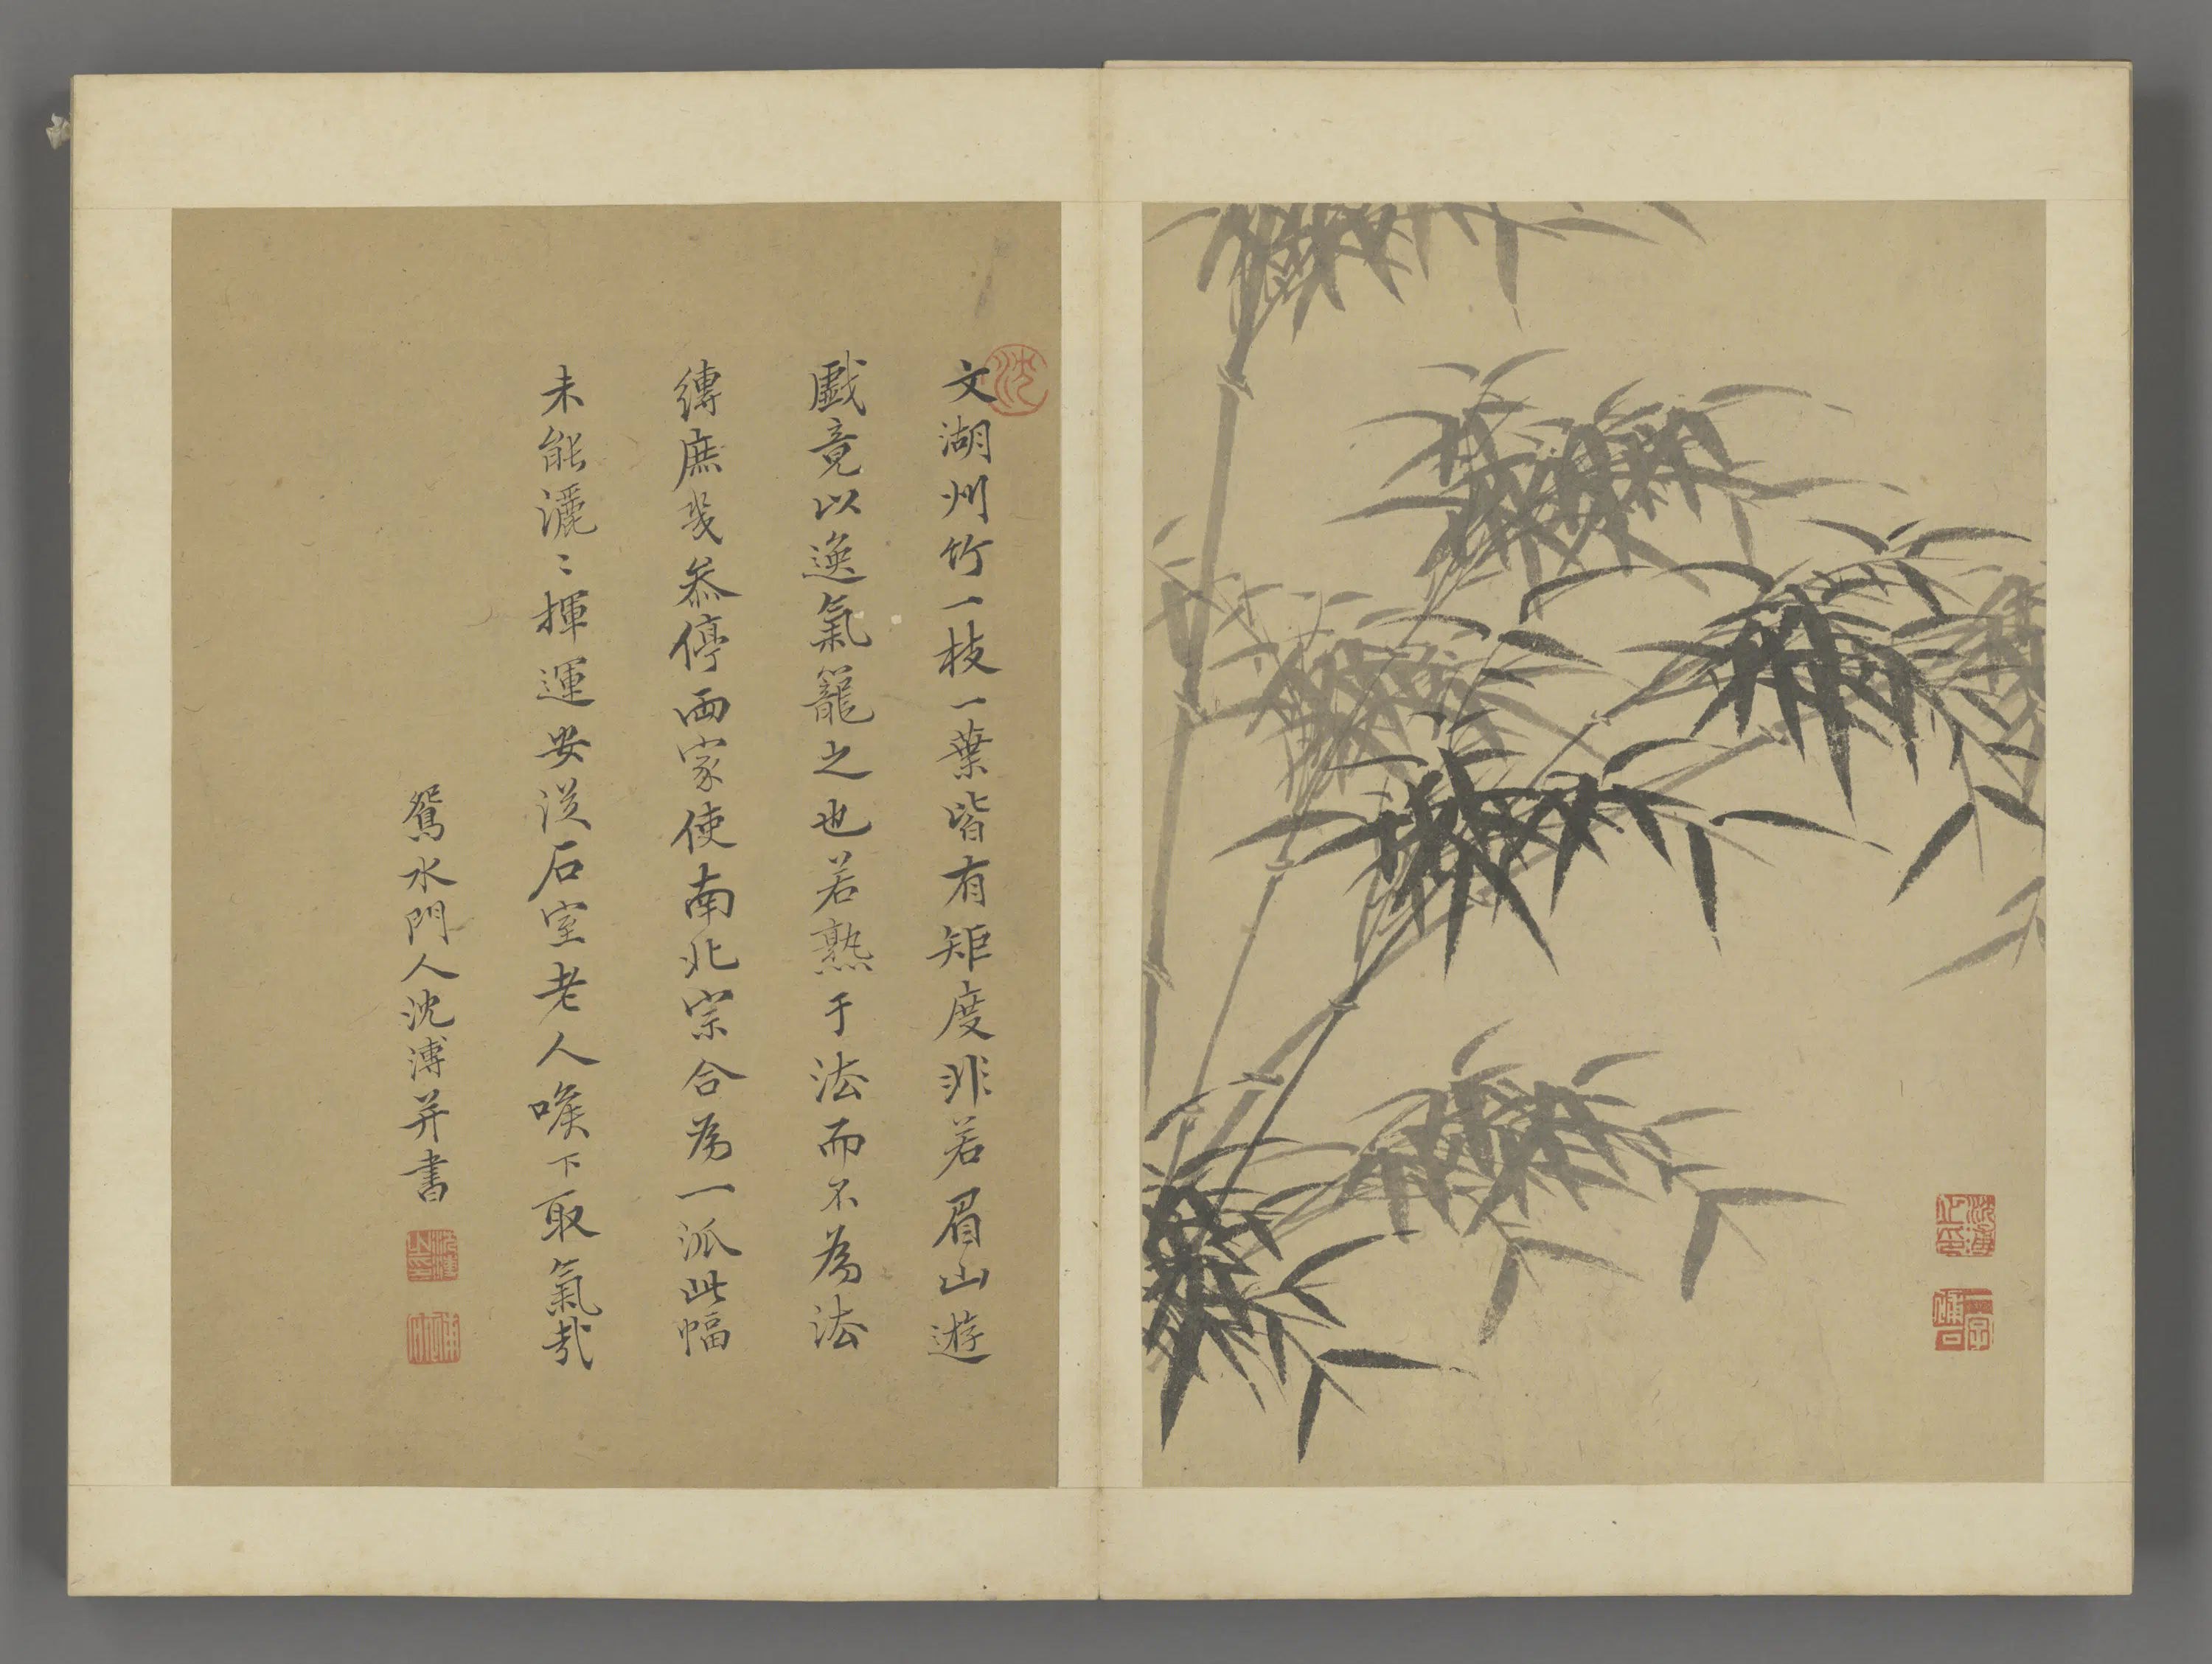 文湖州竹一枝一葉皆有矩度非若眉山遊
戲竟以逸氣籠之也若熟于法而不為法
縛庶幾叅停兩家使南北宗合為一派此幅
未能灑〻揮運安從石室老人喉下取氣哉
鴛水門人沈溥并書
沈
沈溥之印
一字